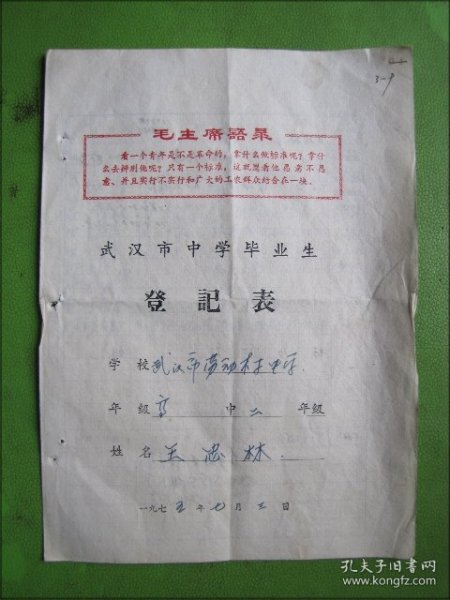 3-9
毛主席語录
看一个青年是不是革命的，拿什么做标准呢？拿什
么去辨别他呢？只有一个标准，这就是看他愿意不愿
意、并且实行不实行和广大的工农群众结合在一块。
武汉市中学毕业生
登記表
学校 武汉市劳动村中学
年級 高 中 二 年級
姓名 王忠林
一九七五年七月三日
孔夫子旧书网
www.kongfz.com